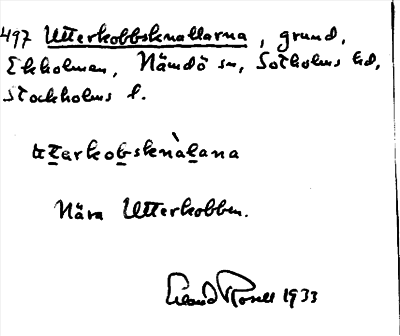 497 Utterkobbsknallarna, grund,
Ekholmen, Nämdö sn, Sotholms hd,
Stockholms l.
utarkobsknàlana
Nära Utterkobben.
Erland Rosell 1933